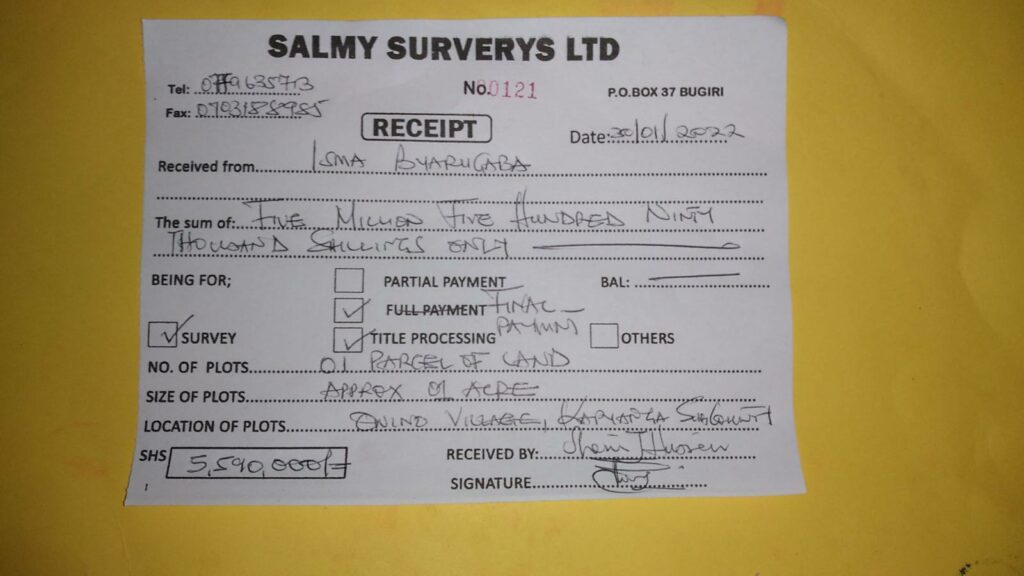 SALMY SURVERYS LTD
Tel: 0779635713
No. 00121
P.O.BOX 37 BUGIRI
Fax: 0703188985
RECEIPT
Date: 30/01/2022
Received from ISMA BYARUGABA
The sum of: FIVE MILLION FIVE HUNDRED NINTY
THOUSAND SHILLINGS ONLY
BEING FOR;
PARTIAL PAYMENT
BAL:
FULL PAYMENT FINAL
PAYMENT
SURVEY
TITLE PROCESSING
OTHERS
NO. OF PLOTS 01 PARCEL OF LAND
SIZE OF PLOTS APPROX 01 ACRE
LOCATION OF PLOTS VILLAGE, SUBCOUNTY
SHS 5,590,000/=
RECEIVED BY:
SIGNATURE